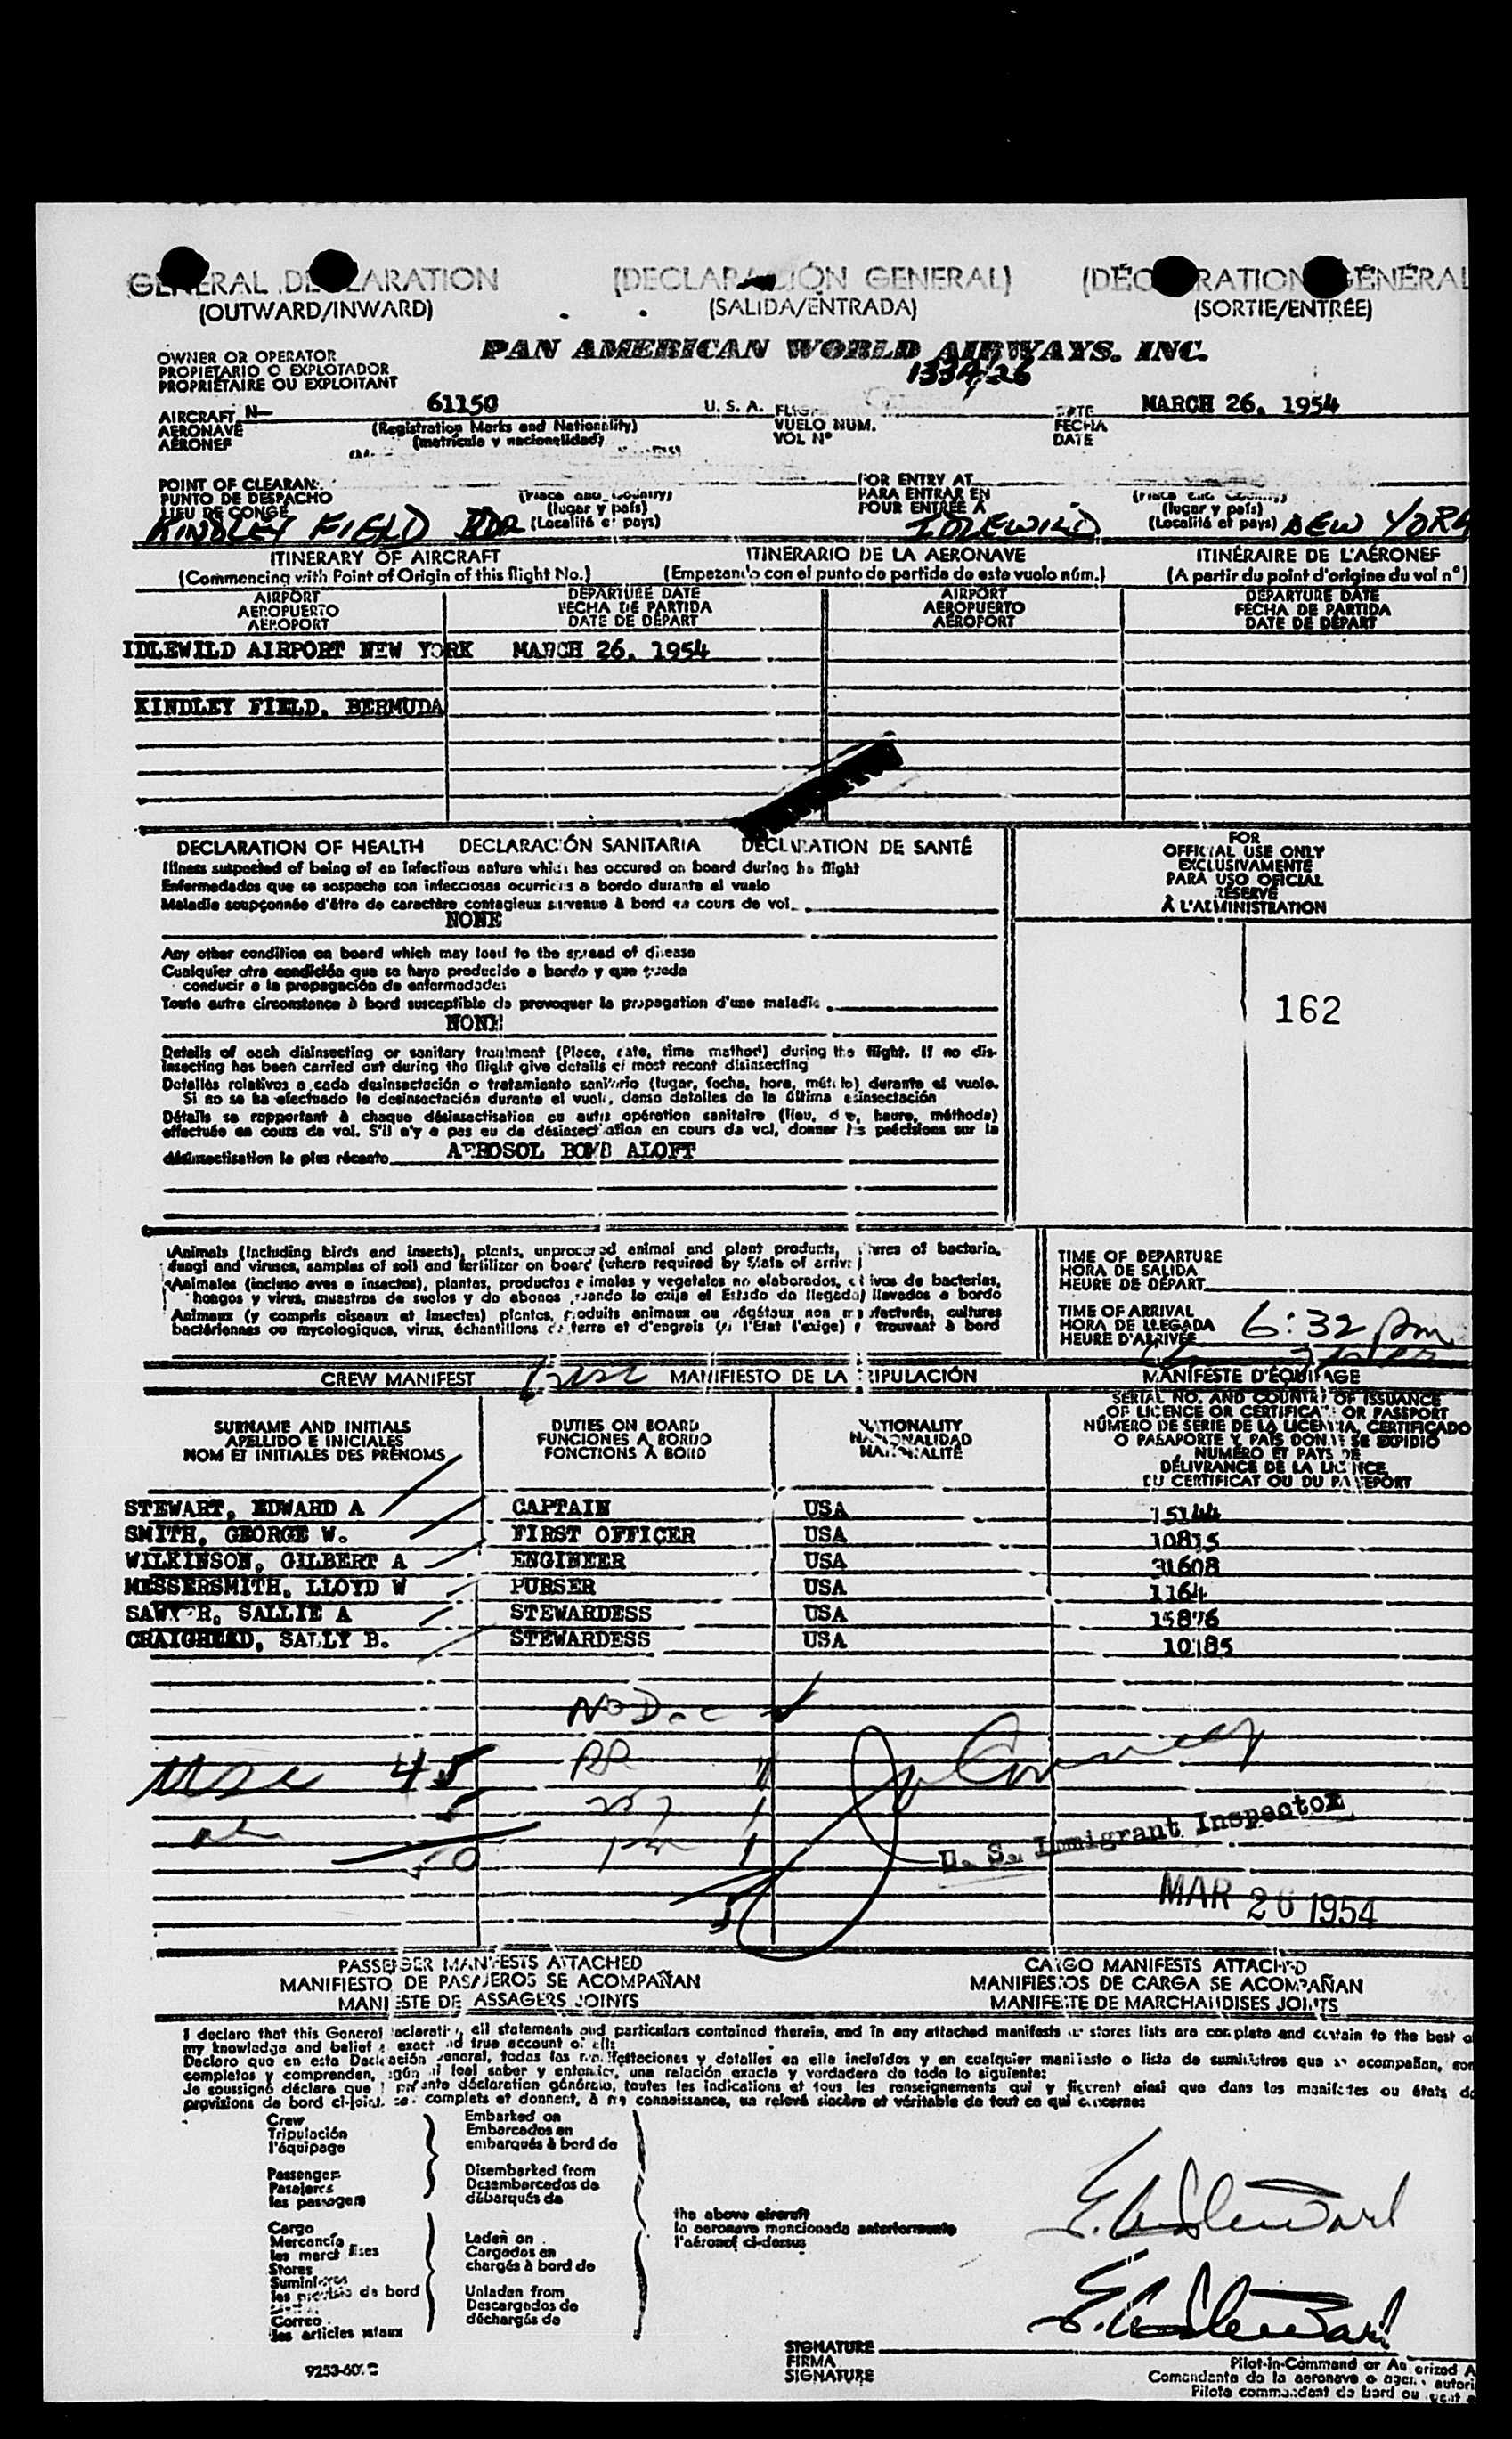 GENERAL DECLARATION (DECLARACIÓN GENERAL) (DÉCLARATION GÉNÉRAL
(OUTWARD/INWARD) (SALIDA/ENTRADA) (SORTIE/ENTRÉE)
OWNER OR OPERATOR
PROPIETARIO O EXPLOTADOR
PROPRIÉTAIRE OU EXPLOITANT
PAN AMERICAN WORLD AIRWAYS. INC.
133A/26
AIRCRAFT N— 61150 U.S.A. DATE MARCH 26, 1954
AERONAVE (Registration Marks and Nationality) VUELO NUM. FECHA
AÉRONEF (matrícula y nacionalidad) VOL N° DATE
POINT OF CLEARAN FOR ENTRY AT
PUNTO DE DESPACHO (Place and Country) PARA ENTRAR EN
LIEU DE CONGÉ (lugar y país) POUR ENTRÉE À (lugar y país)
KINDLEY FIELD BDA (Localité et pays) IDLEWILD (Localité et pays) NEW YORK
ITINERARY OF AIRCRAFT ITINERARIO DE LA AERONAVE ITINÉRAIRE DE L'AÉRONEF
(Commencing with Point of Origin of this flight No.) (Empezando con el punto de partida de este vuelo núm.) (A partir du point d'origine du vol n°)
AIRPORT DEPARTURE DATE AIRPORT DEPARTURE DATE
AEROPUERTO FECHA DE PARTIDA AEROPUERTO FECHA DE PARTIDA
AÉROPORT DATE DE DÉPART AÉROPORT DATE DE DÉPART
IDLEWILD AIRPORT NEW YORK MARCH 26, 1954
KINDLEY FIELD, BERMUDA
DECLARATION OF HEALTH DECLARACIÓN SANITARIA DÉCLARATION DE SANTÉ
Illness suspected of being of an infectious nature which has occured on board during he flight
Enfermedades que se sospecha son infecciosas ocurridas a bordo durante el vuelo
Maladie soupçonnée d'être de caractère contagieux survenue à bord en cours de vol
NONE
Any other condition on board which may lead to the spread of disease
Cualquier otra condición que se haya producido a bordo y que pueda
conducir a la propagación de enfermedades
Toute autre circonstance à bord susceptible de provoquer la propagation d'une maladie
NONE
Details of each disinsecting or sanitary treatment (Place, date, time method) during the flight. If no dis-
insecting has been carried out during the flight give details of most recent disinsecting
Detalles relativos a cada desinsectación o tratamiento sanitario (lugar, fecha, hora, método) durante el vuelo.
Si no se ha efectuado la desinsectación durante el vuelo, dense detalles de la última desinsectación
Détails se rapportant à chaque désinsectisation ou autre opération sanitaire (lieu, date, heure, méthode)
effectuée en cours de vol. S'il n'y a pas eu de désinsectisation en cours de vol, donner les précisions sur la
désinsectisation la plus récente AEROSOL BOMB ALOFT
FOR
OFFICIAL USE ONLY
EXCLUSIVAMENTE
PARA USO OFICIAL
RÉSERVÉ
À L'ADMINISTRATION
162
Animals (Including birds and insects), plants, unprocessed animal and plant products, cultures of bacteria,
fungi and viruses, samples of soil and fertilizer on board (where required by State of arrival)
Animales (incluso aves e insectos), plantas, productos animales y vegetales no elaborados, cultivos de bacterias,
hongos y virus, muestras de suelos y de abonos cuando lo exija el Estado de llegada) llevados a bordo
Animaux (y compris oiseaux et insectes) plantes, produits animaux ou végétaux non manufacturés, cultures
bactériennes ou mycologiques, virus, échantillons de terre et d'engrais (si l'État l'exige) se trouvant à bord
TIME OF DEPARTURE
HORA DE SALIDA
HEURE DE DÉPART
TIME OF ARRIVAL
HORA DE LLEGADA 6:32 pm
HEURE D'ARRIVÉE
CREW MANIFEST MANIFIESTO DE LA TRIPULACIÓN MANIFESTE D'ÉQUIPAGE
SURNAME AND INITIALS
APELLIDO E INICIALES
NOM ET INITIALES DES PRÉNOMS
DUTIES ON BOARD
FUNCIONES A BORDO
FONCTIONS À BORD
NATIONALITY
NACIONALIDAD
NATIONALITÉ
SERIAL NO. AND COUNTRY OF ISSUANCE
OF LICENCE OR CERTIFICATE OR PASSPORT
NÚMERO DE SERIE DE LA LICENCIA, CERTIFICADO
O PASAPORTE Y PAÍS DONDE SE EXPIDIÓ
NUMÉRO ET PAYS DE
DÉLIVRANCE DE LA LICENCE
DU CERTIFICAT OU DU PASSEPORT
STEWART, EDWARD A CAPTAIN USA 15144
SMITH, GEORGE W. FIRST OFFICER USA 10815
WILKINSON, GILBERT A ENGINEER USA 31608
MESSERSMITH, LLOYD W PURSER USA 1164
SAWYER, SALLIE A STEWARDESS USA 15876
CRAIGHEAD, SALLY B. STEWARDESS USA 10185
No Doc
USC 45
al 5
50
U. S. Immigrant Inspector
MAR 26 1954
PASSENGER MANIFESTS ATTACHED CARGO MANIFESTS ATTACHED
MANIFIESTO DE PASAJEROS SE ACOMPAÑAN MANIFIESTOS DE CARGA SE ACOMPAÑAN
MANIFESTE DE PASSAGERS JOINTS MANIFESTE DE MARCHANDISES JOINTS
I declare that this General Declaration, all statements and particulars contained therein, and in any attached manifests or stores lists are complete and certain to the best o
my knowledge and belief exact and true account of all:
Declaro que en esta Declaración General, todas las manifestaciones y detalles en ella incluídos y en cualquier manifiesto o lista de suministros que se acompañan, son
completos y comprenden, según mi leal saber y entender, una relación exacta y verdadera de todo lo siguiente:
Je soussigné déclare que la présente déclaration générale, toutes les indications et tous les renseignements qui y figurent ainsi que dans les manifestes ou états d
provisions de bord ci-joint, sont complets et donnent, à ma connaissance, un relevé sincère et véritable de tout ce qui concerne:
Crew
Tripulación
l'équipage
Passenger
Pasajeros
les passagers
Cargo
Mercancía
les merchandises
Stores
Suministros
les provisions de bord
Correo
les articles postaux
Embarked on
Embarcados en
embarqués à bord de
Disembarked from
Desembarcados de
débarqués de
Laden on
Cargados en
chargés à bord de
Unladen from
Descargados de
déchargés de
the above aircraft
la aeronave mencionada anteriormente
l'aéronef ci-dessus
E. A. Stewart
E. A. Stewart
SIGNATURE
FIRMA
SIGNATURE
Pilot-in-Command or Authorized A
Comandante de la aeronave o agente autori
Pilote commandant de bord ou agent
9253-60